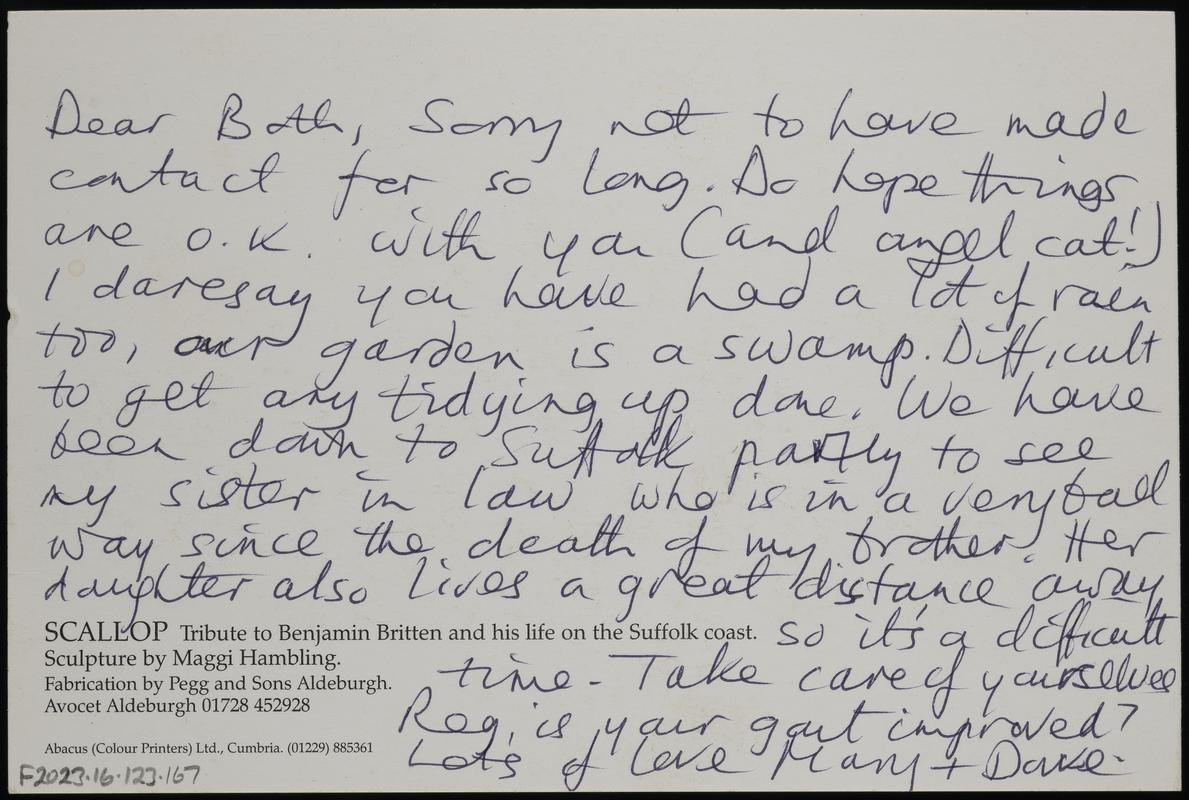 Dear Both, Sorry not to have made
contact for so long. Do hope things
are o.k. with you (and angel cat!)
I daresay you have had a lot of rain
too, our garden is a swamp. Difficult
to get any tidying up done. We have
been down to Suffolk partly to see
my sister in law who is in a very bad
way since the death of my brother. Her
daughter also lives a great distance away
SCALLOP Tribute to Benjamin Britten and his life on the Suffolk coast.
so it's a difficult
Sculpture by Maggi Hambling.
time - Take care of yourselves
Fabrication by Pegg and Sons Aldeburgh.
Avocet Aldeburgh 01728 452928
Reg, is your gout improved?
Abacus (Colour Printers) Ltd., Cumbria. (01229) 885361
Lots of love Mary + Dave.
F2023.16.123.167